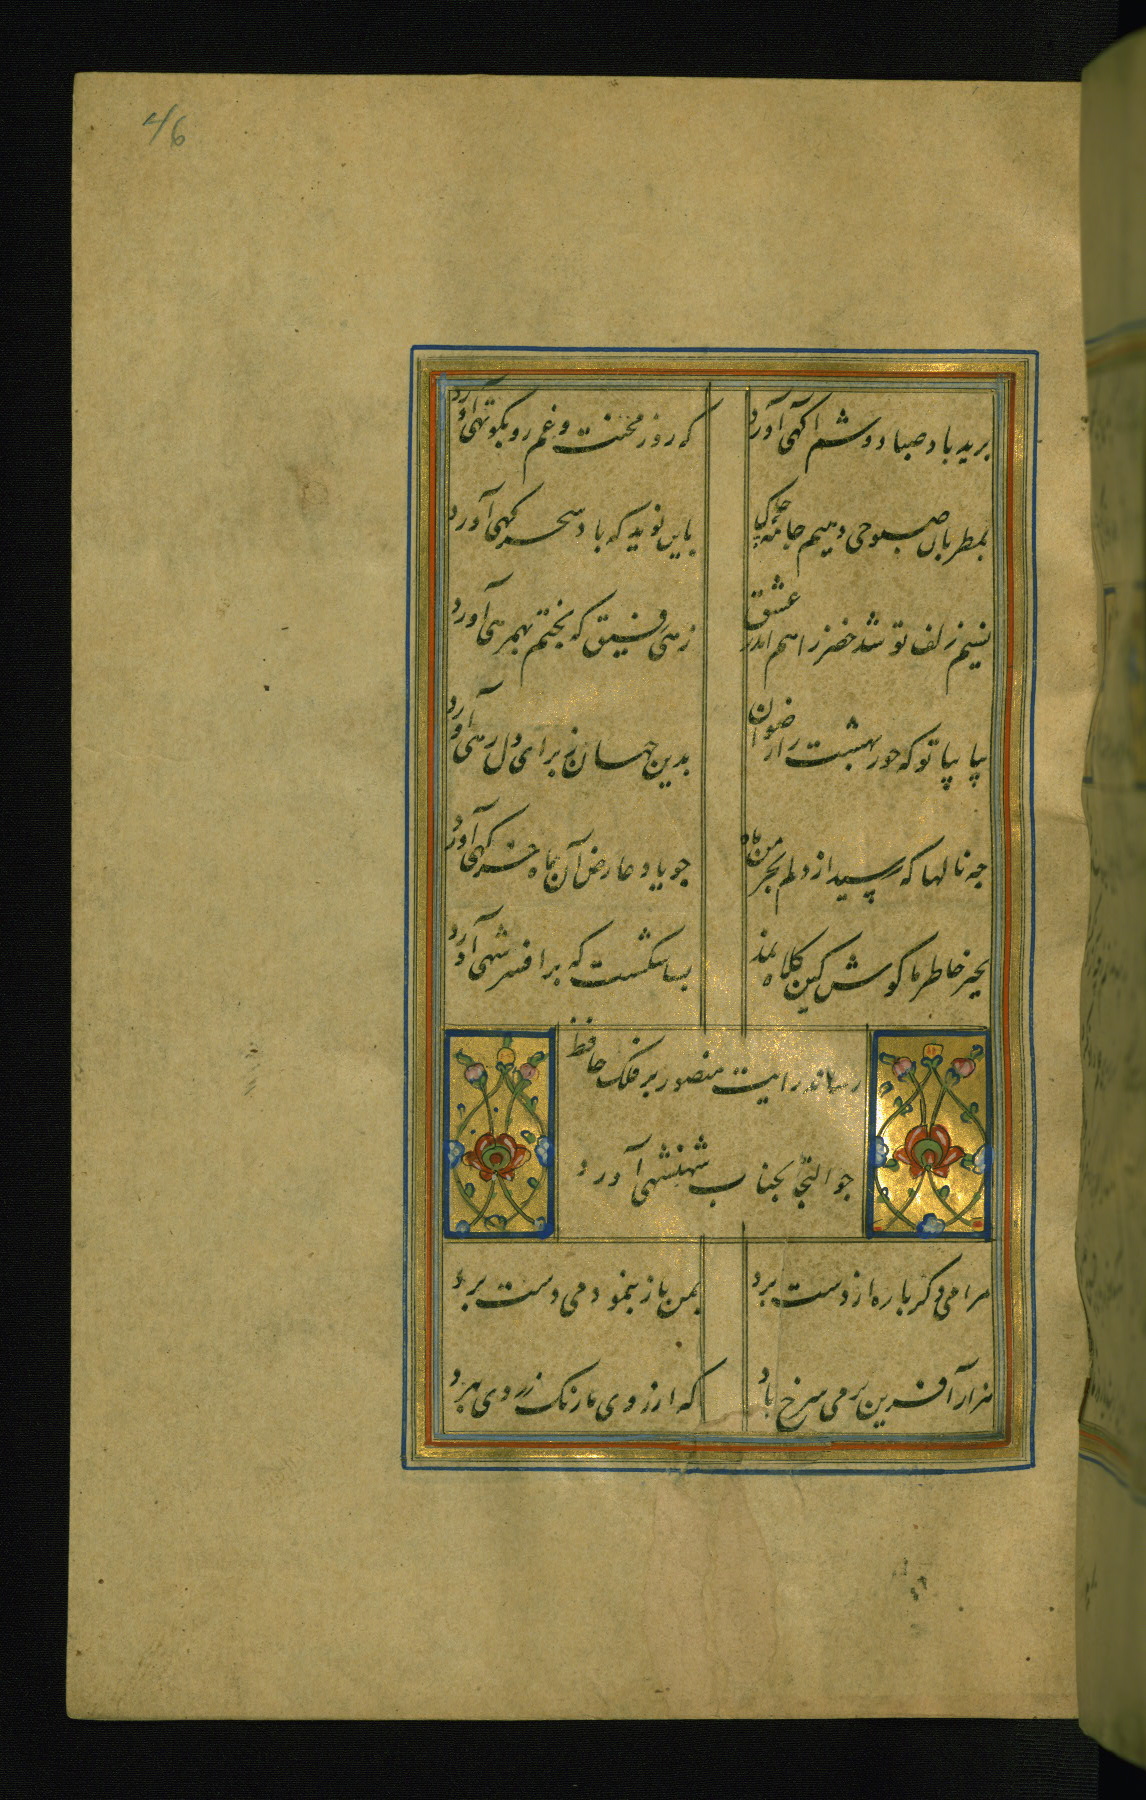 46
برید باد صبا دوشم آکهی آورد
که روز محنت و غم رو بکوتهی آورد
بمطربان صبوحی دهیم جامهٔ پاک
باین نوید که باد سحرکهی آورد
نسیم زلف تو شد خضر راهم اندر عشق
زهی رفیق که بختم بهمرهی آورد
بیا بیا تو که حور بهشت را رضوان
بدین جهان ز برای دل رهی آورد
چه نالها که رسید از دلم بخرمن ماه
چو یاد عارض آن ماه خرکهی آورد
بخیر خاطر ما کوش کین کلاه نمد
بسا شکست که بر افسر شهی آورد
رساند رایت منصور بر فلک حافظ
چو التجا بجناب شهنشهی آورد
مرا می دکر باره از دست برد
بمن باز بنمود می دست برد
هزار آفرین بر می سرخ باد
که از روی ما رنک زردی ببرد